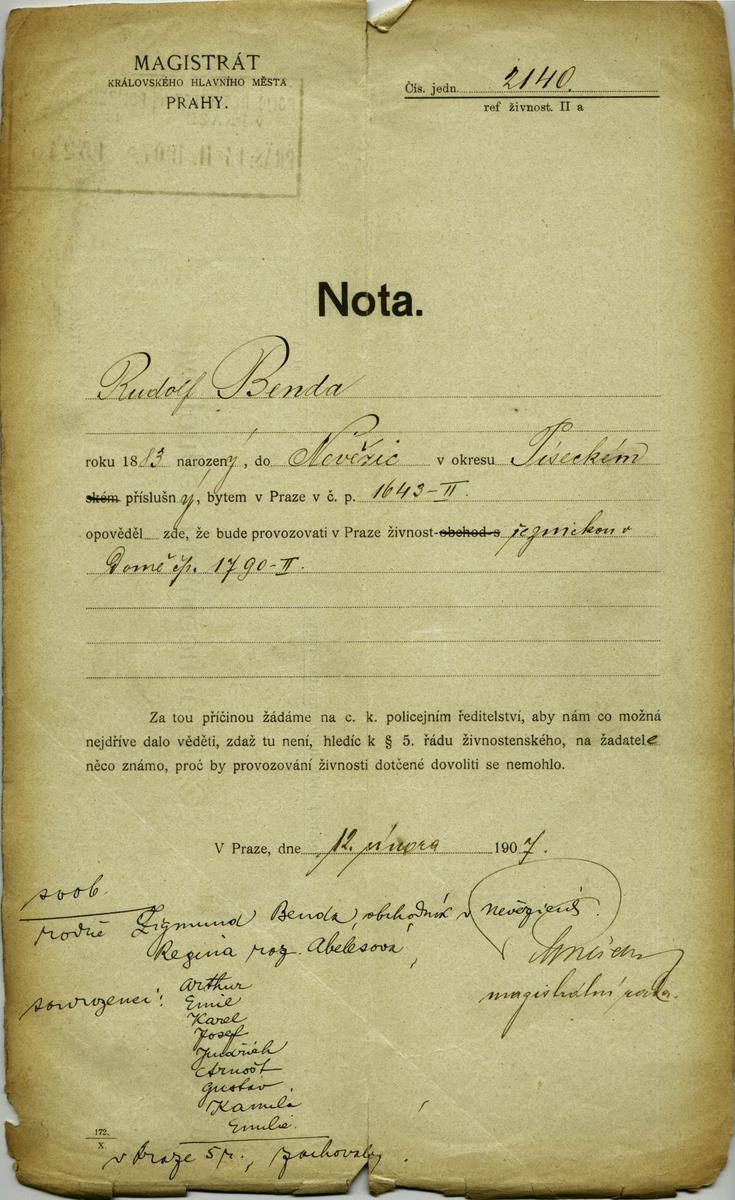 MAGISTRÁT
KRÁLOVSKÉHO HLAVNÍHO MĚSTA
PRAHY.
Čís. jedn. 2140.
ref živnost. II a
Nota.
Rudolf Benda
roku 1883 narozený, do Nevězic v okresu Píseckém
ském příslušný, bytem v Praze v č. p. 1643-II.
opověděl zde, že bude provozovati v Praze živnost obchod s řeznickou v
Domě čp. 1790-II.
Za tou příčinou žádáme na c. k. policejním ředitelství, aby nám co možná
nejdříve dalo věděti, zdaž tu není, hledíc k § 5. řádu živnostenského, na žadatele
něco známo, proč by provozování živnosti dotčené dovoliti se nemohlo.
V Praze, dne 12. února 1907.
svob.
rodiče Zigmund Benda, obchodník v
Regina roz. Abelesová,
magistrátní rada.
sourozenci: Arthur
Emil
Karel
Josef
Jindřich
Arnošt
Gustav
Kamila
Emilie.
172.
X.
v Praze 5 r., zachovalý.